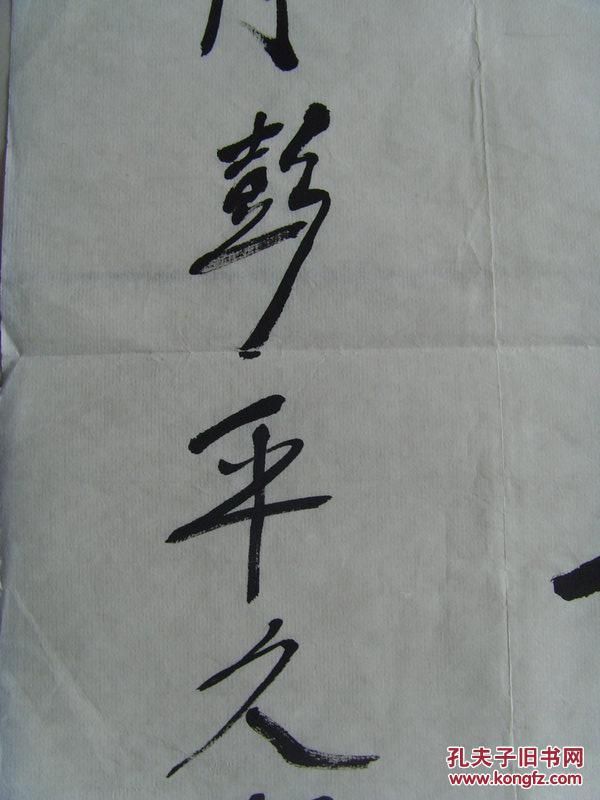 月彭平久
孔夫子旧书网
www.kongfz.com